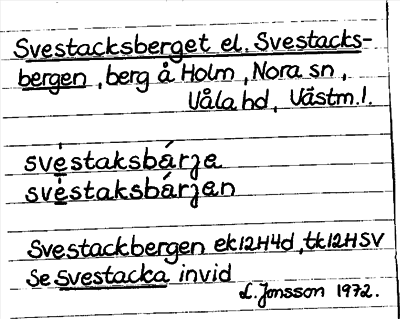 Svestacksberget el. Svestacks-
bergen, berg å Holm, Nora sn,
Våla hd, Västm. l.
svèstaksbárʒa
svèstaksbárʒan
Svestackbergen ek12H4d, tk12HSV
Se Svestacka invid
L. Jonsson 1972.